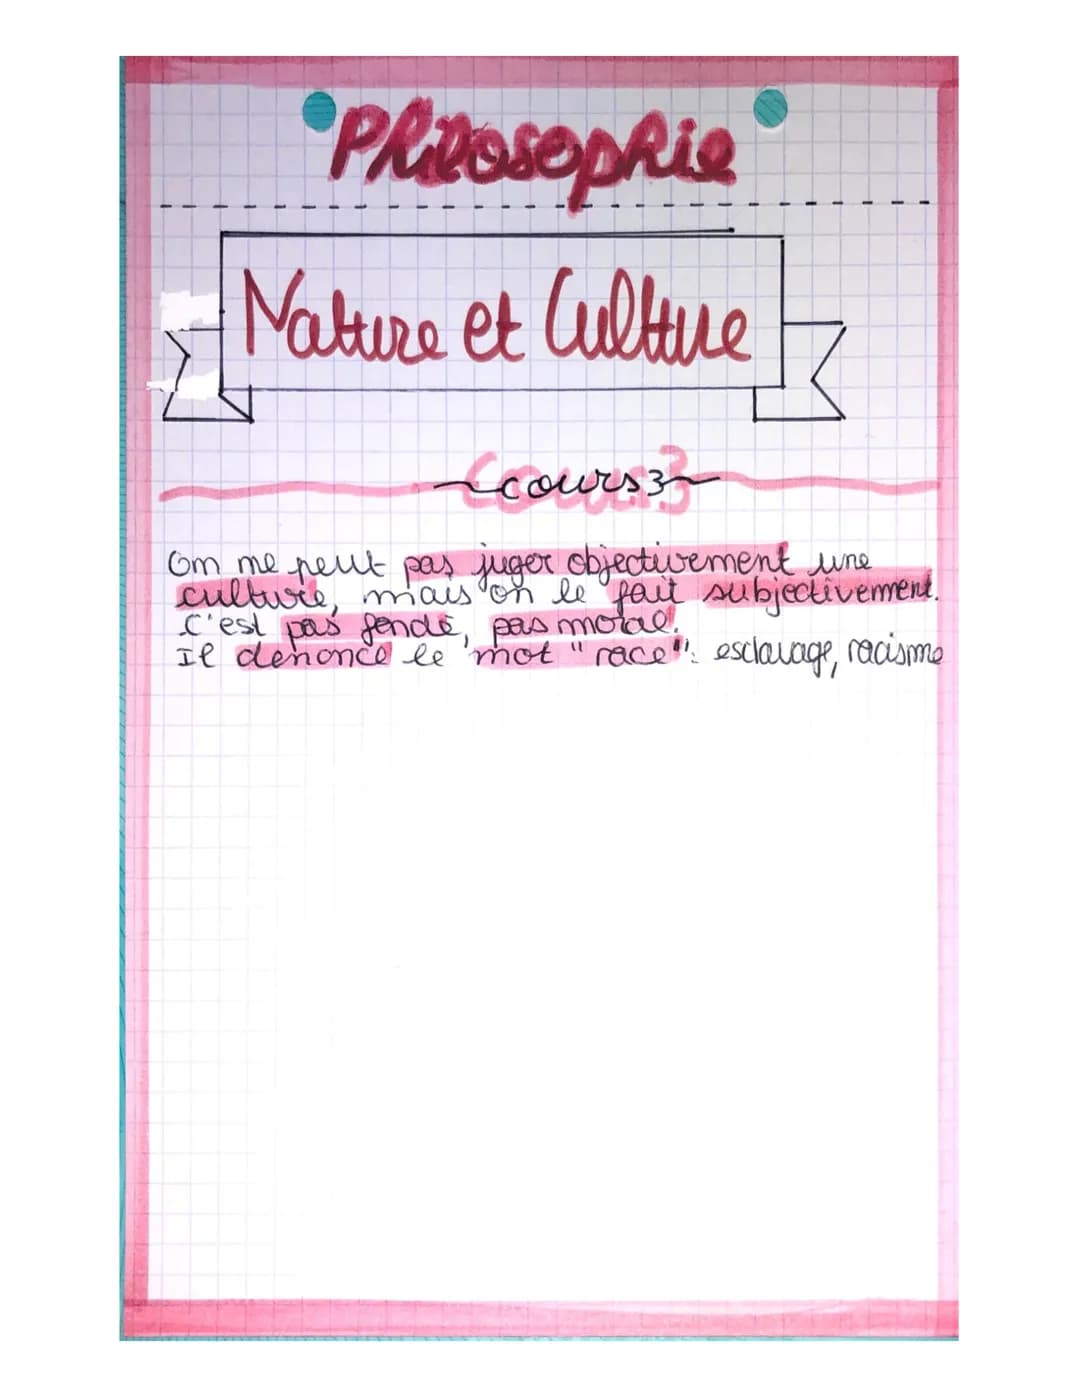 Philosophie
Nature et Culture
cours 3
On ne peut pas juger objectivement une
culture, mais on le fait subjectivement.
C'est pas fondé, pas moral.
Il dénonce le mot "race": esclavage, racisme